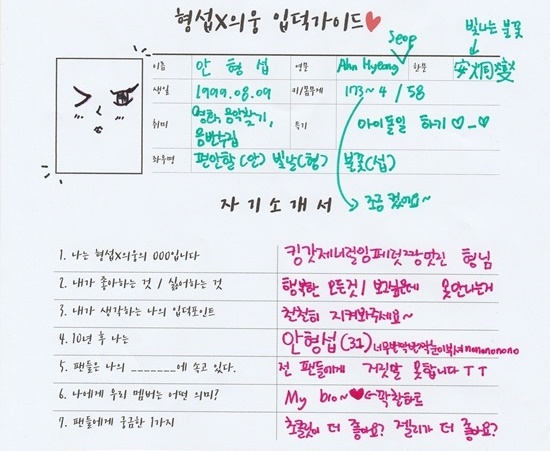 형섭X의웅 입덕가이드♥
빛나는 불꽃
Seop
이름 안 형 섭 영문 Ahn Hyeong 한문 安炯燮
생일 1999.08.09 키/몸무게 173~4 / 58
취미 영화, 음악찾기, 음반수집 특기 아이돌일 하기 ♡_♡
좌우명 편안할 (안) 빛날 (형) 불꽃 (섭)
조금 컸어요~
자 기 소 개 서
1. 나는 형섭X의웅의 OOO입니다 킹갓제너럴임페럴짱멋진 형님
2. 내가 좋아하는 것 / 싫어하는 것 행복한 모든것 / 보고싶은데 못만나는거
3. 내가 생각하는 나의 입덕포인트 천천히 지켜봐주세요~
4. 10년 후 나는 안형섭 (31) 너무반짝반짝눈이부셔nonononono
5. 팬들은 나의 _______에 속고 있다. 전 팬들에게 거짓말 못합니다 ㅜㅜ
6. 나에게 우리 멤버는 어떤 의미? My bro~♥←꽉찬하트
7. 팬들에게 궁금한 1가지 초콜릿이 더 좋아요? 젤리가 더 좋아요?